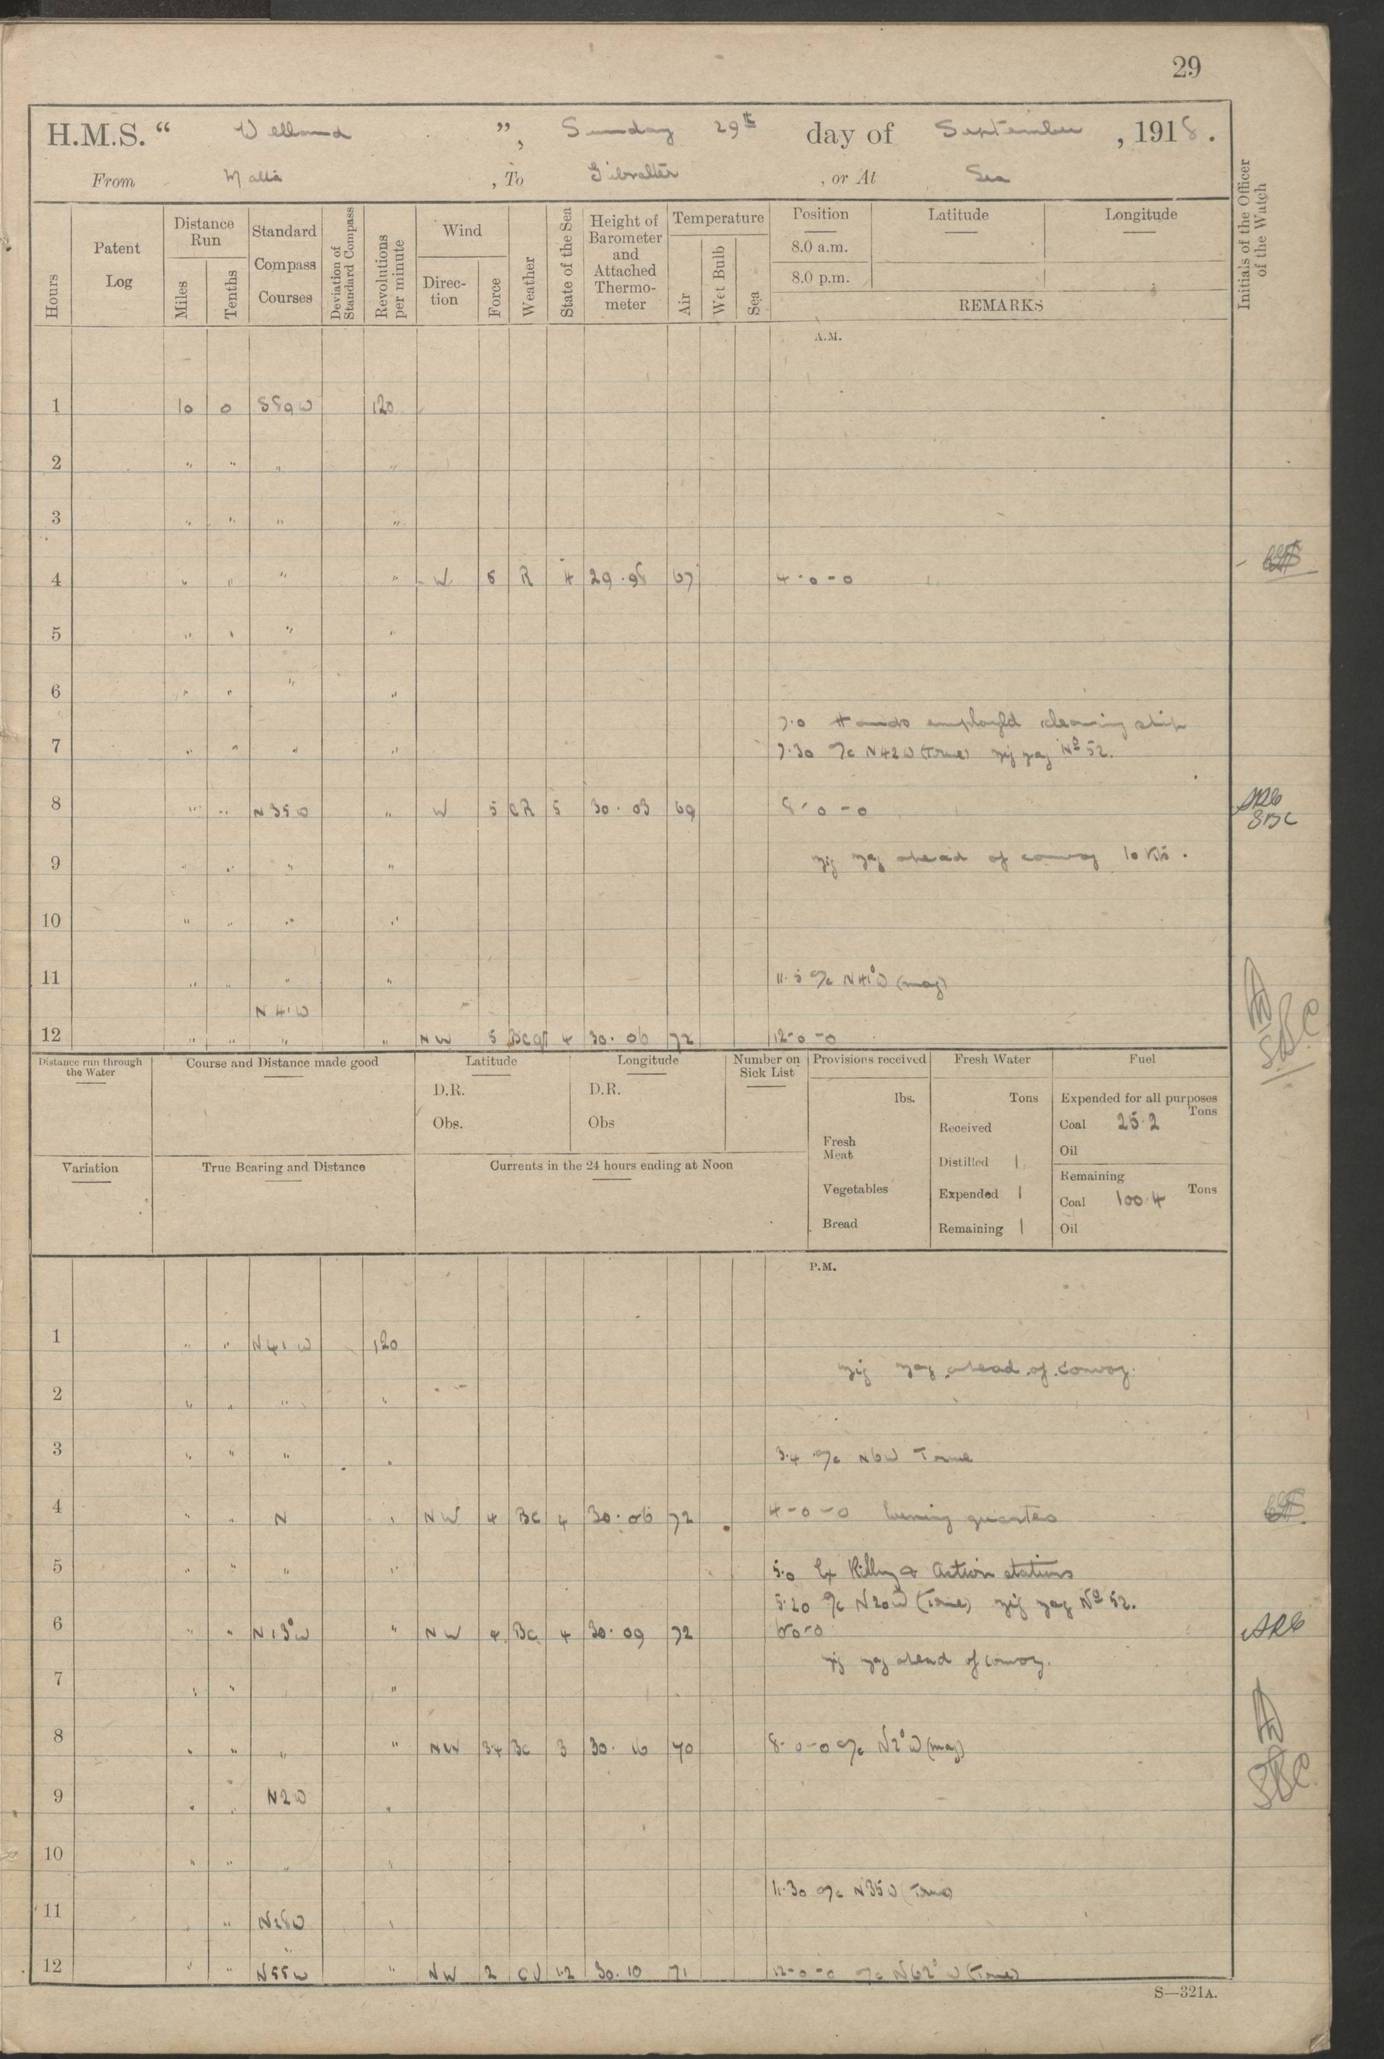 29
H.M.S. “ Welland ”, Sunday 29th day of September , 1918.
From Malta , To Gibralter , or At Sea
Hours
Patent Log
Distance Run
Miles
Tenths
Standard Compass Courses
Deviation of Standard Compass
Revolutions per minute
Wind
Direction
Force
Weather
State of the Sea
Height of Barometer and Attached Thermometer
Temperature
Air
Wet Bulb
Sea
Position
Latitude
Longitude
8.0 a.m.
8.0 p.m.
REMARKS
Initials of the Officer of the Watch
A.M.
1 10 0 S89W 120
2 " " " "
3 " " " "
4 " " " " W 5 R 4 29.98 67 4-0-0
5 " " " "
6 " " " "
7.0 Hands employed cleaning ship
7 " " " " 7.30 a/c N42W (True) zig zag No 52.
8 " " N35W " W 5 CR 5 30.03 69 8-0-0
SBC
9 " " " " zig zag ahead of convoy 10 Kts.
10 " " " "
11 " " " " 11.5 a/c N41°W (mag)
N41W
12 " " " " NW 5 Bcqr 4 30.06 72 12-0-0
SBC
Distance run through the Water
Course and Distance made good
Latitude
D.R.
Obs.
Longitude
D.R.
Obs
Number on Sick List
Provisions received
lbs.
Fresh Meat
Vegetables
Bread
Fresh Water
Tons
Received
Distilled 1
Expended 1
Remaining 1
Fuel
Expended for all purposes
Tons
Coal 25.2
Oil
Remaining
Tons
Coal 100.4
Oil
Variation
True Bearing and Distance
Currents in the 24 hours ending at Noon
P.M.
1 " " N41W 120
zig zag ahead of convoy.
2 " " " "
3 " " " " 3.4 a/c N6W True
4 " " N " NW 4 BC 4 30.06 72 4-0-0 Evening quarters
5 " " " " 5.0 Ex Action stations
5.20 a/c N20W (True) zig zag No 52.
6 " " N13°W " NW 4 BC 4 30.09 72 6-0-0
zig zag ahead of convoy.
7 " " "
8 " " " " NW 34 BC 3 30.10 70 8-0-0 a/c N2°W (mag)
SBC
9 " " N2W "
10 " " " "
11.30 a/c N35W (True)
11 " N28W "
"
12 " " N55W " NW 2 1.2 30.10 71 12-0-0 a/c N62°W (True)
S—321A.